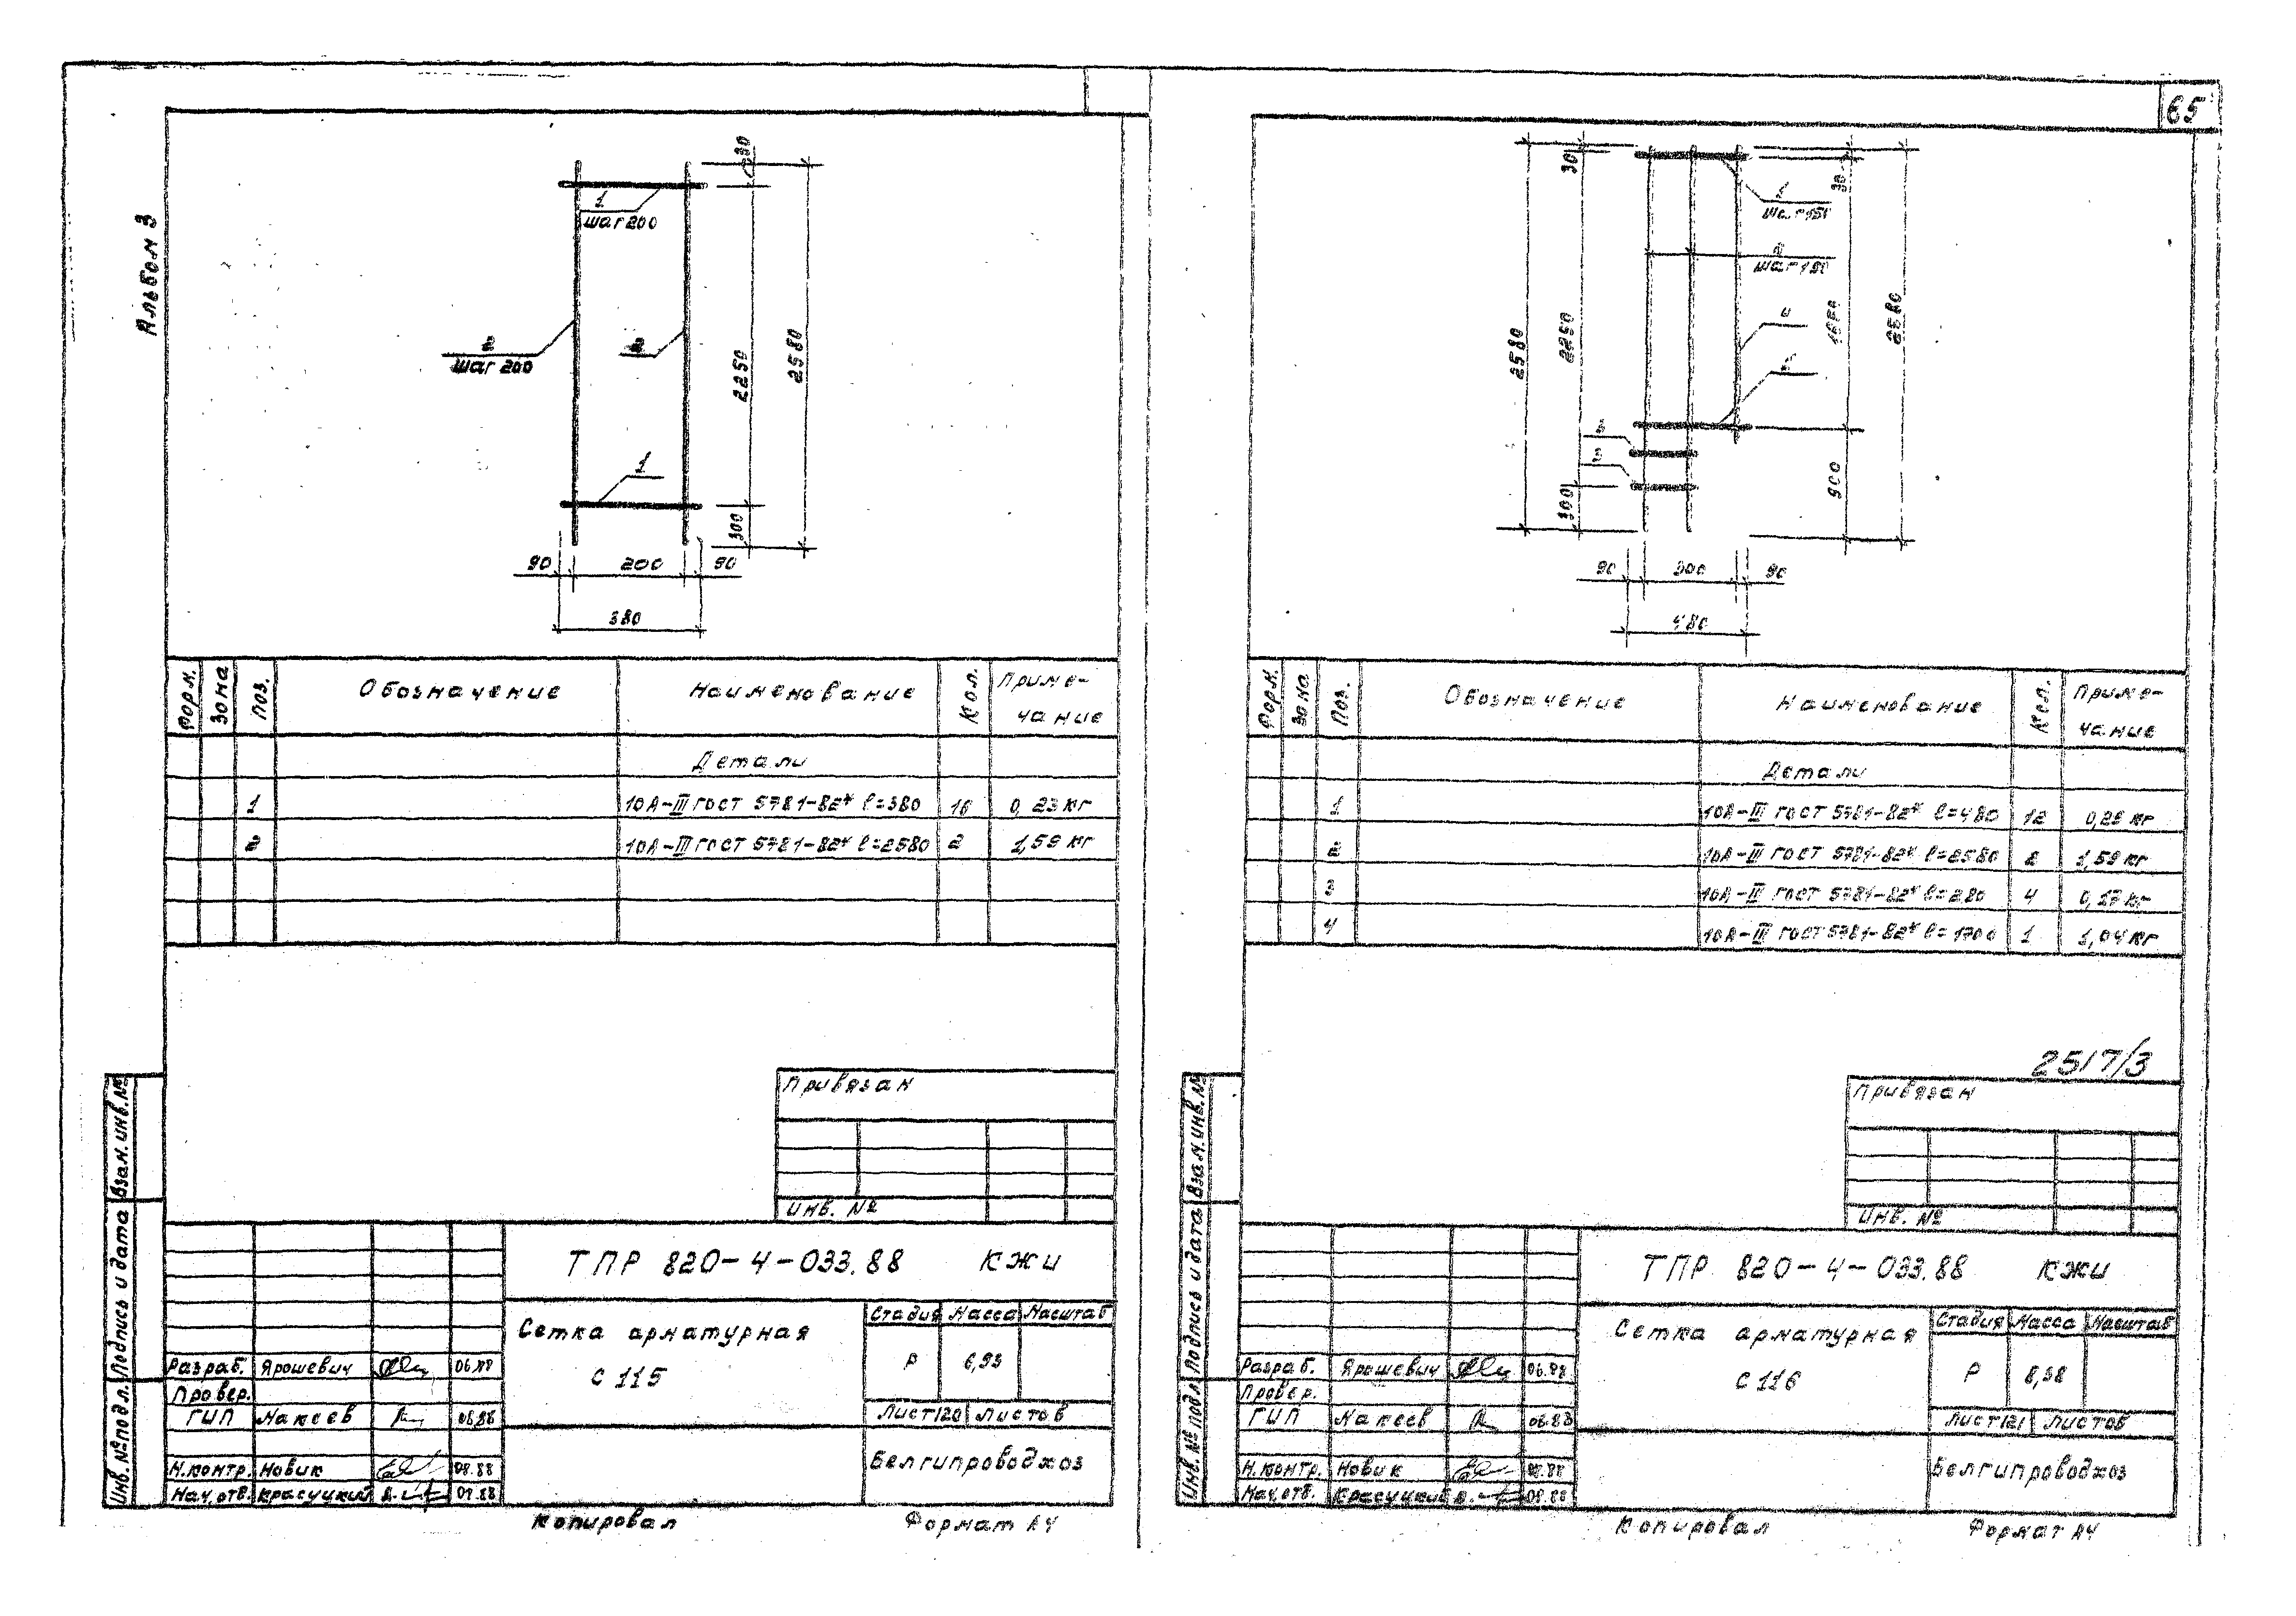 65
Альбом 3
30
1
шаг 200
2
шаг 200
2
2250
2580
1
300
90 200 90
380
Форм. Зона Поз. Обозначение Наименование Кол. Примечание
Детали
1 10А-III ГОСТ 5781-82* ℓ=380 16 0,23 кг
2 10А-III ГОСТ 5781-82* ℓ=2580 2 1,59 кг
Привязан
Инв. №
Взам. инв. №
Подпись и дата
Инв. № подл.
ТПР 820-4-033.88 КЖИ
Сетка арматурная
С 115
Стадия Масса Масштаб
Р 6,93
Лист 120 Листов
Белгипроводхоз
Разраб. Ярошевич 06.88
Провер.
ГИП Макеев 08.88
Н.контр. Новик 08.88
Нач.отв. Красуцкий 08.88
Копировал Формат А4
30
1
шаг 150
30
2
шаг 150
2580
2250
4
1650
2580
3
3
300
900
90 300 90
480
Форм. Зона Поз. Обозначение Наименование Кол. Примечание
Детали
1 10А-III ГОСТ 5781-82* ℓ=480 12 0,29 кг
2 10А-III ГОСТ 5781-82* ℓ=2580 2 1,59 кг
3 10А-III ГОСТ 5781-82* ℓ=280 4 0,17 кг
4 10А-III ГОСТ 5781-82* ℓ=1700 1 1,04 кг
2517/3
Привязан
Инв. №
Взам. инв. №
Подпись и дата
Инв. № подл.
ТПР 820-4-033.88 КЖИ
Сетка арматурная
С 116
Стадия Масса Масштаб
Р 8,38
Лист 121 Листов
Белгипроводхоз
Разраб. Ярошевич 06.88
Провер.
ГИП Макеев 08.88
Н.контр. Новик 08.88
Нач.отв. Красуцкий 08.88
Копировал Формат А4